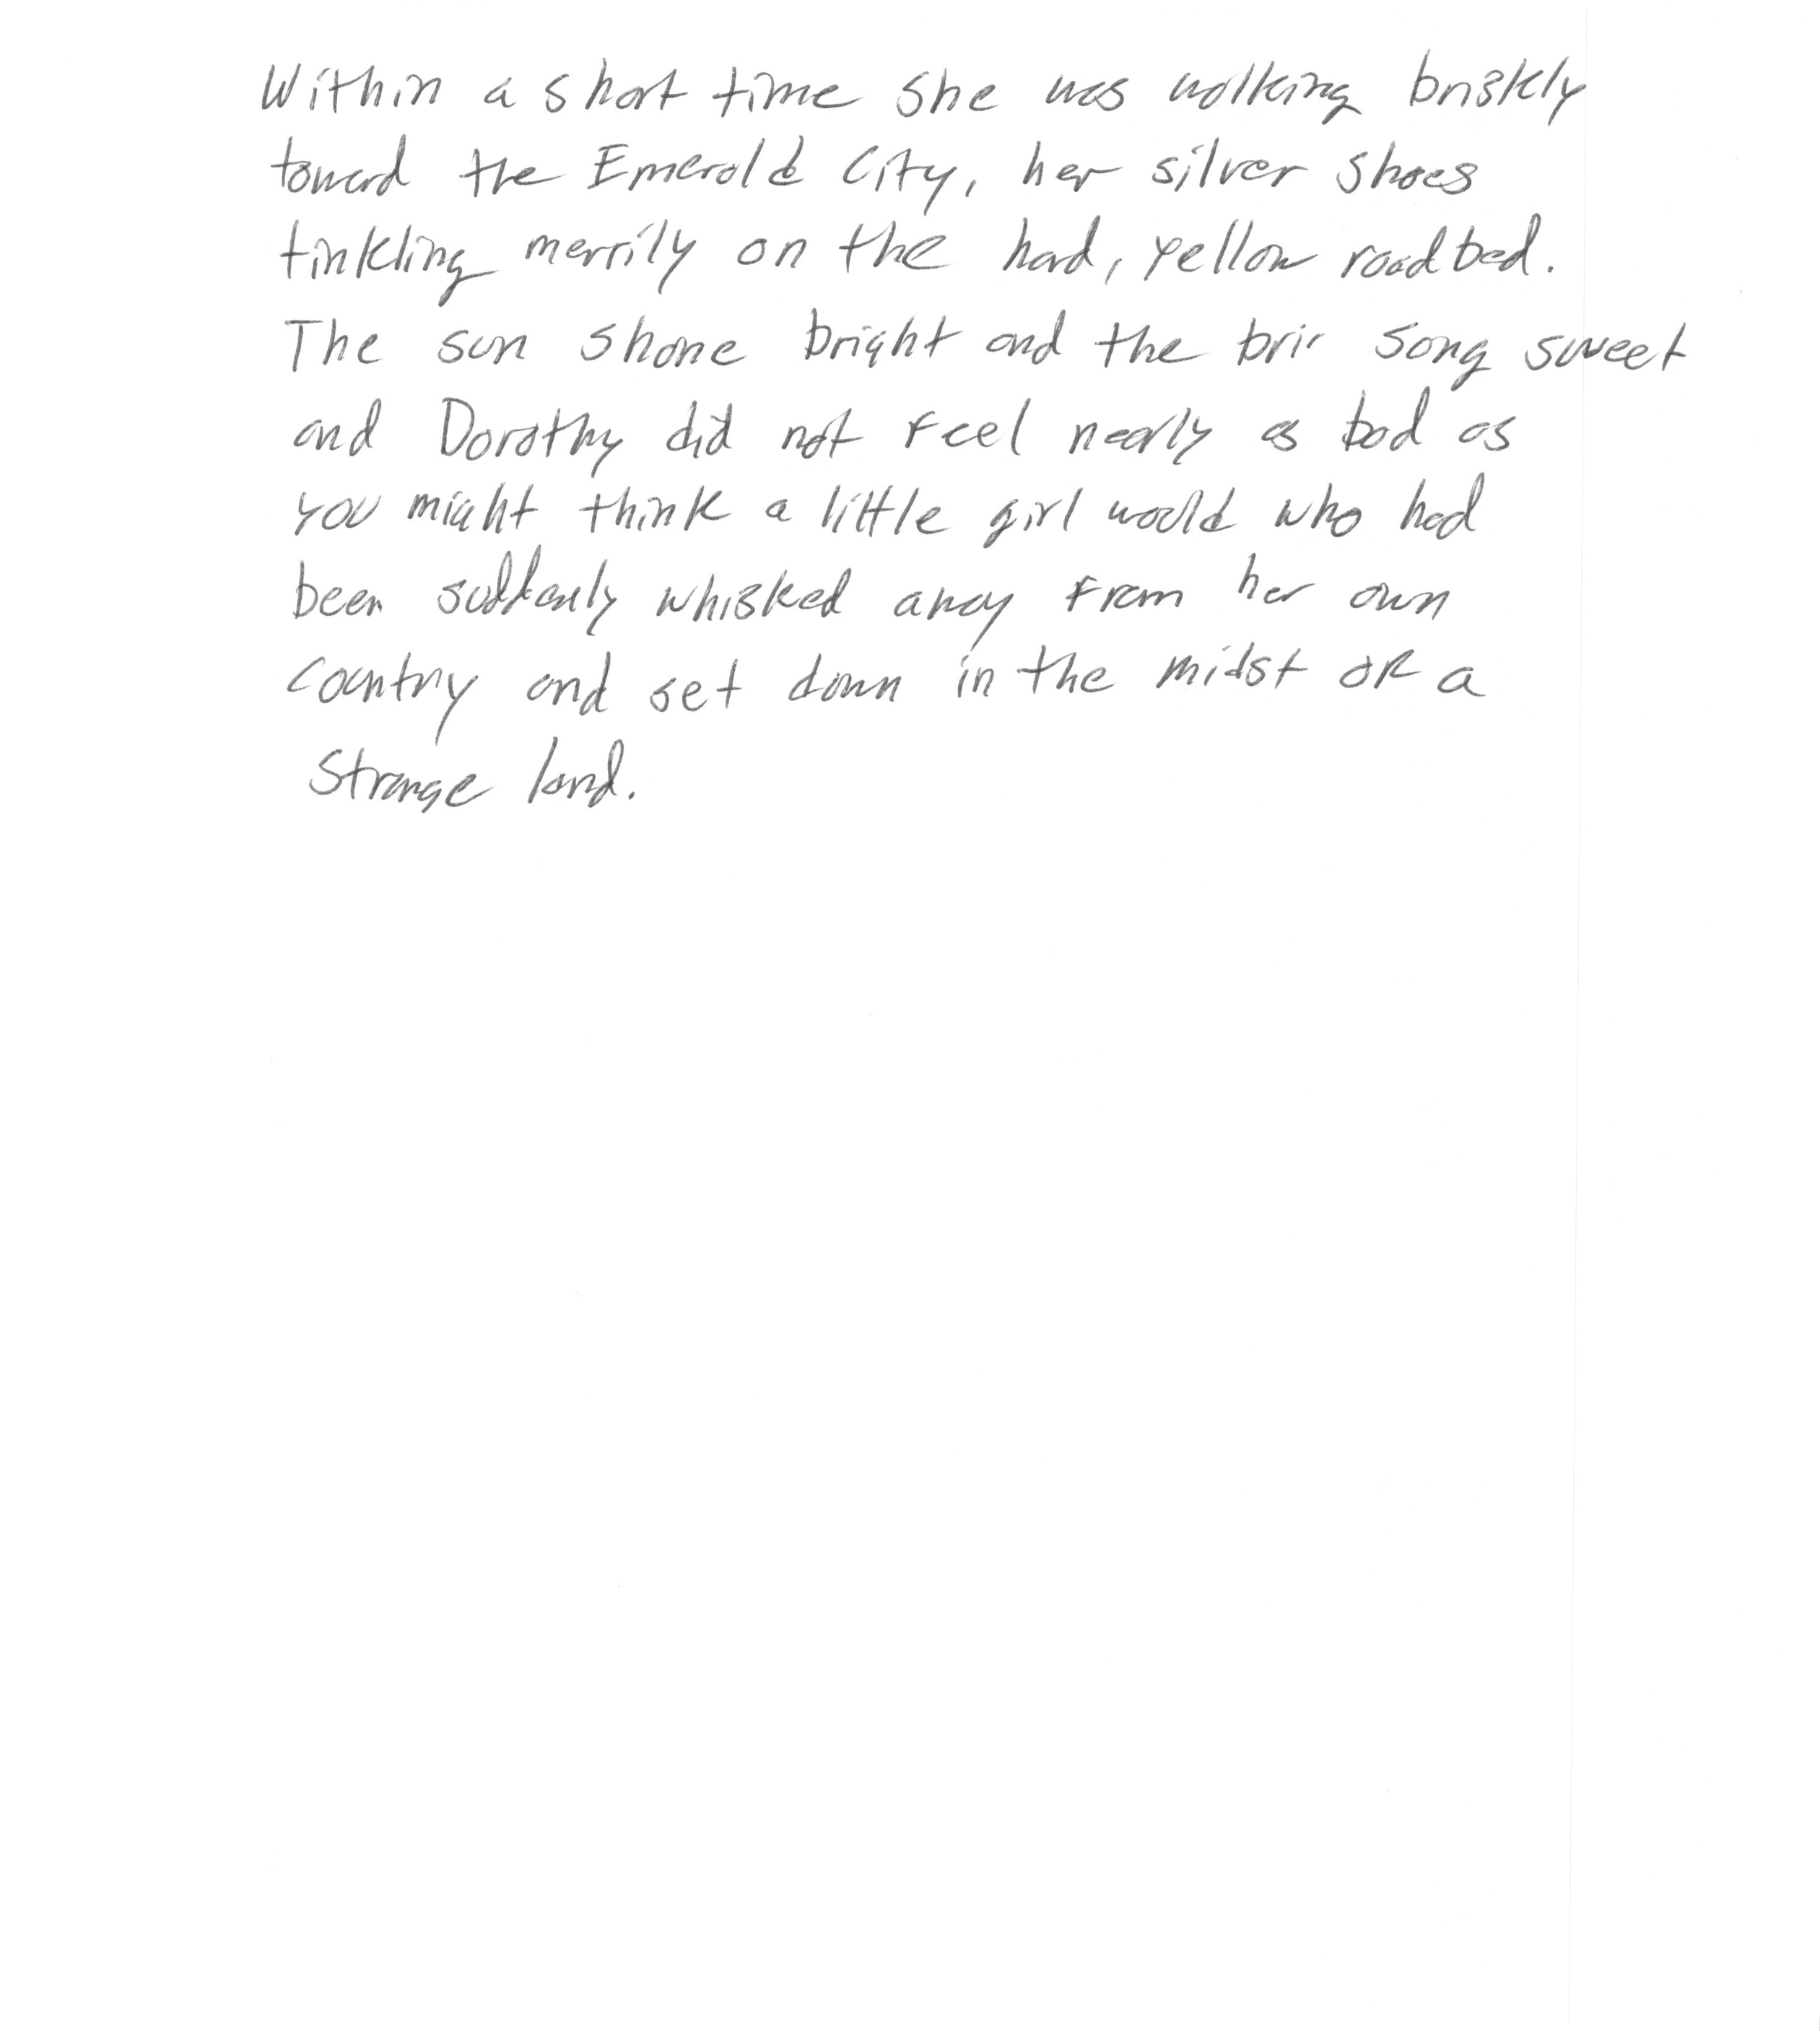 Within a short time she was walking briskly
toward the Emerald City, her silver shoes
tinkling merrily on the hard, yellow roadbed.
The sun shone bright and the song sweet
and Dorothy did not feel nearly as bad as
you might think a little girl would who had
been suddenly whisked away from her own
country and set down in the midst of a
strange land.